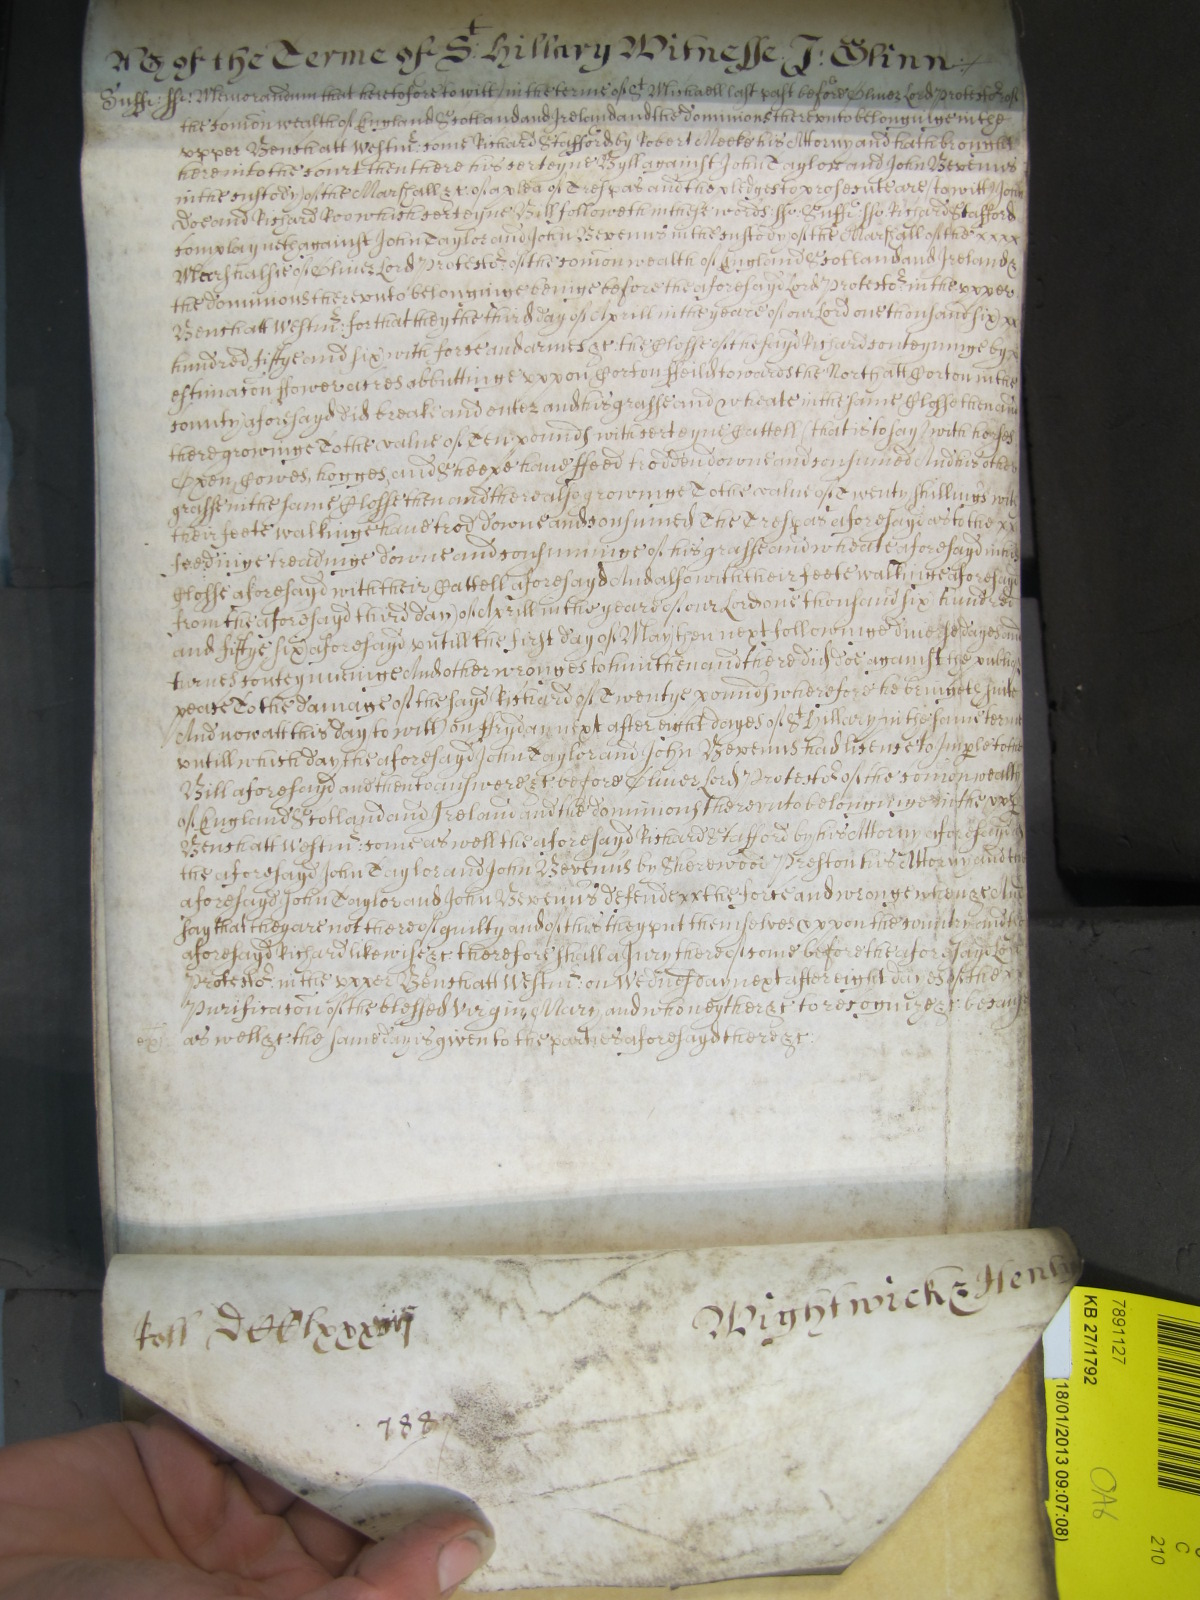 Ag of the Terme of St Hillary Witnesse J: Glinn
Suff: ss: Memorandum that heretofore to witt in the terme of St Michaell last past before Oliver Lord Protector of
the comon wealth of England Scotland and Ireland and the dominions thereunto belonginge in the
upper Bench att Westmr: came Richard Stafford by Robert Meeke his Attorny and hath brought
here into the court then there his certeyne Byll against John Taylor and John Bexenus
in the custody of the Marshall &c of a plea of Trespas and the pledges to prosecute are to witt John
Doe and Richard Roo which certeyne Bill followeth in these words ss: Suff: ss: Richard Stafford
complayneth against John Taylor and John Bexenus in the custody of the Marshall of the xxxx
Marshalsie of Oliver Lord Protector of the comon wealth of England Scotland and Ireland &
the dominions thereunto belonginge beinge before the aforesayd Lord Protector in the upper
Bench att Westmr: for that they the third day of Aprill in the yeare of our Lord one thousand six xx
hundred fiftye and six with force and armes &c the Closse of the sayd Richard conteyninge by
estimacon ffower acres abbuttinge uppon Corton ffeild towards the North att Corton in the
county aforesayd did breake and enter and his grasse and wheate in the same Closse then and
there growinge To the value of Ten pounds with certeyne Cattell (that is to say) with horses
Oxen, Cowes, hogges, and Sheepe have ffeed trodden downe and consumed And his other
grasse in the same Closse then and there also growinge To the value of Twenty shillings with
their feete walkinge have trod downe and consumed The Trespas aforesayd as to the xx
feedinge treadinge downe and consuminge of his grasse and wheate aforesayd in the
Closse aforesayd with their Cattell aforesayd And also with their feete walkinge aforesayd
from the aforesayd third day of Aprill in the yeare of our Lord one thousand six hundred
and fiftye six aforesayd untill the first day of May then next followinge diverse dayes and
tymes conteynueinge And other wronges to him then and there did doe against the publick
peace To the damage of the sayd Richard of Twentye pounds wherefore he bringeth suite
And now att this day to witt on ffryday next after eight dayes of St Hillary in the same terme
untill which day the aforesayd John Taylor and John Bexenus had licence to Imple to the
Bill aforesayd and then to answere &c before Oliver Lord Protector of the comon wealth
of England Scotland and Ireland and the dominions thereunto belonginge in the upp
Bench att Westmr: come as well the aforesayd Richard Stafford by his Attorny aforesayd as
the aforesayd John Taylor and John Bexenus by Sherewood Preston his Attorny and the
aforesayd John Taylor and John Bexenus defende xx the force and wronge when &c And
say that they are not thereof guilty and of this they put themselves uppon the country and the
aforesayd Richard likewise &c therefore shall a Jury thereof come before the aforesayd Lord
Protector in the upper Bench att Westmr: on Wednesday next after eight dayes of the
Purificacon of the blessed Virgin Mary and who neyther &c to recognize &c because
as well &c the same day is given to the parties aforesayd there &c
Wightwick & Henly
788
7891127
KB 27/1792
18/01/2013 09:07:08)
OA6
C
210